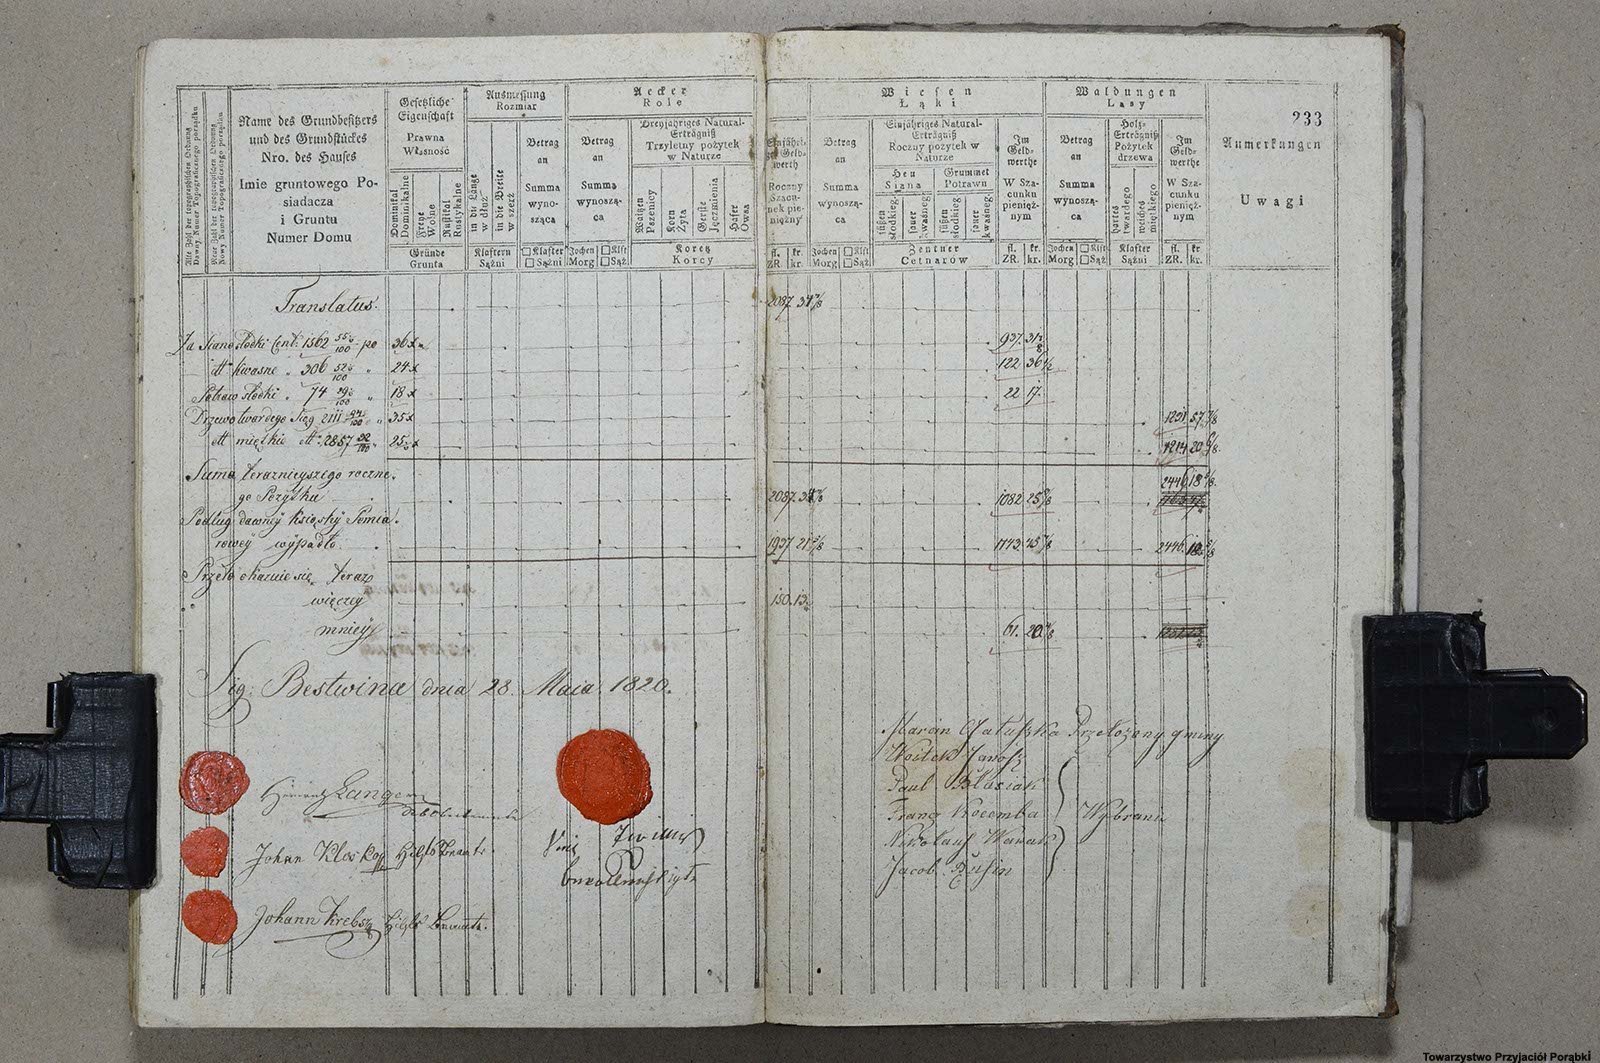 233
Alte Zahl der topographischen Ordnung
Dawny Numer Topograficznego porządku
Neue Zahl der topographischen Ordnung
Nowy Numer Topograficznego porządku
Name des Grundbesitzers
und des Grundstückes
Nro. des Hauses
Imie gruntowego Po-
siadacza
i Gruntu
Numer Domu
Gesetzliche
Eigenschaft
Prawna
Własność
Dominikal
Dominikalne
Freye
Wolne
Rustikal
Rustykalne
Gründe
Grunta
Ausmessung
Rozmiar
in die Länge
w dłuż
in die Breite
w szerz
Klaftern
Sążni
Betrag
an
Summa
wyno-
sząca
□ Klafter
□ Sążni
Aecker
Role
Betrag
an
Summa
wynoszą-
ca
Jochen □ Klft
Morg □ Sąż
Dreyjähriges Natural-
Erträgniß
Trzyletny pożytek
w Naturze
Waitzen
Pszenicy
Korn
Żyta
Gerste
Jęczmienia
Hafer
Owsa
Koretz
Korcy
Einjähri-
ges Geld-
werth
Roczny
Szacu-
nek pie-
niężny
fl. kr.
ZR. kr.
Wiesen
Łąki
Betrag
an
Summa
wynoszą-
ca
Jochen □ Klft
Morg □ Sąż
Einjähriges Natural-
Erträgniß
Roczny pożytek w
Naturze
Heu
Siana
Grummet
Potrawu
süßen
słodkieg.
sauer
kwaśneg.
süßen
słodkieg
sauer
kwaśneg
Zentner
Cetnarów
Im
Geld-
werthe
W Sza-
cunku
pienięż-
nym
fl. kr.
ZR. kr.
Waldungen
Lasy
Betrag
an
Summa
wynoszą-
ca
Jochen □ Klft
Morg □ Sąż
Holz-
Erträgniß
Pożytek
drzewa
hartes
twardego
weiches
miękkiego
Klafter
Sążni
Im
Geld-
werthe
W Sza-
cunku
pienięż-
nym
fl. kr.
ZR. kr.
Anmerkungen
Uwagi
Translatus 2087 37 7/8
Za Siano słodki Cent: 1562 55/100 po 36 x 937. 31 4/8
dtt kwasne " 306 52/100 " 24 x 122 36 1/2
Potraw słodki " 74 29/100 " 18 x 22 17.
Drzewo twardego Siąg 2111 94/100 " 35 x 1231 57 7/8
dtt miętkie dtt 2857 92/100 " 25 x 1214 20 6/8
Suma teraznieyszego roczne-
go Pożytku 2087. 34 7/8 1082 25 2/8 2446 18 5/8
Podług dawneyKsiąski Pomia-
rowey wypadło. 1937 21 7/8 1143. 45 7/8 2446 18 5/8
Przeto okazuie się teraz
więcey 150. 13
mniey 61. 20 5/8
Sig: Bestwina dnia 28. Maia 1820.
Langer
Johan Hilfs Beamte
Johann Krebs Hilfs Beamte.
Marcin Przełożony gminy
Woitek Jarosz
Paul Błasiak
Franz Kocemba Wybrani
Nikolaus Wawak
Jacob
Towarzystwo Przyjaciół Porąbki